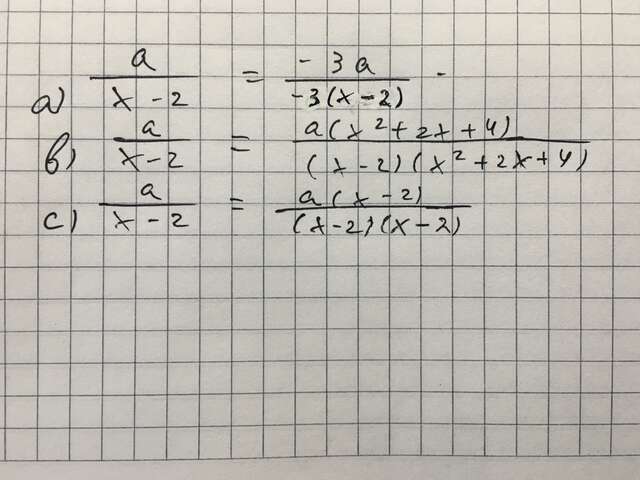 a) a/(x-2) = -3a/(-3(x-2)) .
в) a/(x-2) = a(x²+2x+4)/((x-2)(x²+2x+4))
c) a/(x-2) = a(x-2)/((x-2)(x-2))